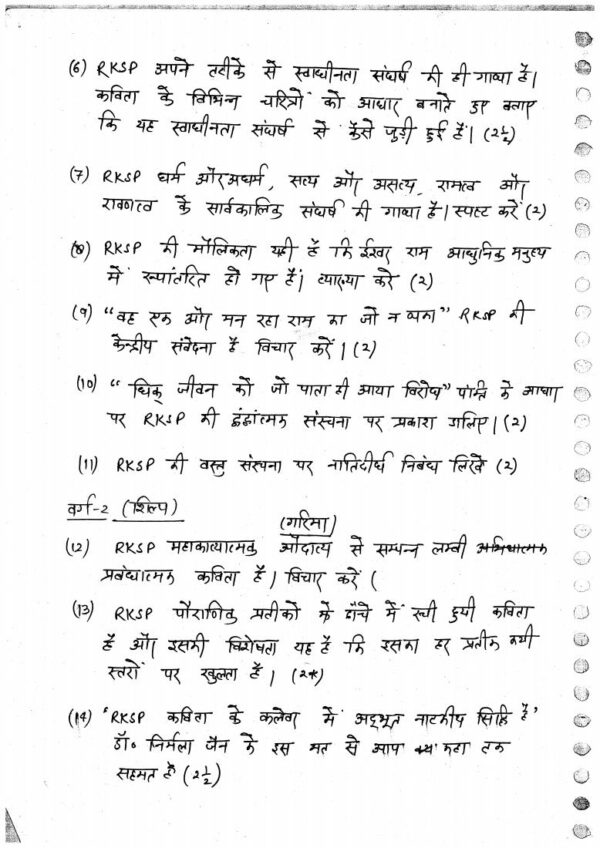 (6) RKSP अपने तरीके से स्वाधीनता संघर्ष की ही गाथा है।
कविता के विभिन्न चरित्रों को आधार बनाते हुए बताए
कि यह स्वाधीनता संघर्ष से कैसे जुड़ी हुई है। (2½)
(7) RKSP धर्म और अधर्म, सत्य और असत्य, रामत्व और
रावणत्व के सार्वकालिक संघर्ष की गाथा है। स्पष्ट करें (2)
(8) RKSP की मौलिकता यही है कि ईश्वर राम आधुनिक मनुष्य
में रूपांतरित हो गए हैं। व्याख्या करे (2)
(9) "वह एक और मन रहा राम का जो न थका" RKSP की
केन्द्रीय संवेदना है विचार करें। (2)
(10) "धिक् जीवन को जो पाता ही आया विरोध" पंक्ति के आधार
पर RKSP की द्वंद्वात्मक संरचना पर प्रकाश डालिए। (2)
(11) RKSP की वस्तु संरचना पर नातिदीर्घ निबंध लिखे (2)
वर्ग-2 (शिल्प)
(गरिमा)
(12) RKSP महाकाव्यात्मक औदात्य से सम्पन्न लम्बी
प्रबंधात्मक कविता है। विचार करें (
(13) RKSP पौराणिक प्रतीकों के ढाँचे में रची हुयी कविता
है और इसकी विशेषता यह है कि इसका हर प्रतीक कयी
स्तरों पर खुलता है। (2*)
(14) 'RKSP कविता के कलेवर में अद्भूत नाटकीय सिद्धि है'
डॉ॰ निर्मला जैन के इस मत से आप कहा तक
सहमत है (2½)